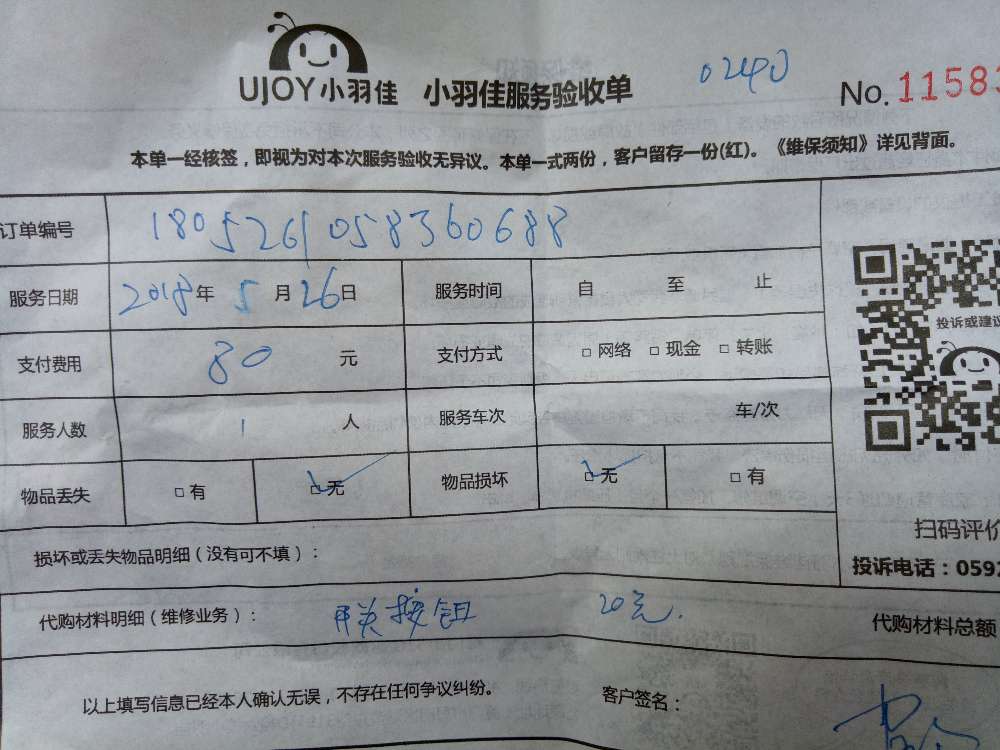 UJOY小羽佳 小羽佳服务验收单 0240 No. 11583
本单一经核签，即视为对本次服务验收无异议。本单一式两份，客户留存一份(红)。《维保须知》详见背面。
订单编号 180526105836068​8
服务日期 2018年 5月 26日 服务时间 自 至 止
投诉或建议
支付费用 80 元 支付方式 □ 网络 □ 现金 □ 转账
服务人数 1 人 服务车次 车/次
物品丢失 □ 有 ☑ 无 物品损坏 ☑ 无 □ 有
扫码评价
损坏或丢失物品明细（没有可不填）：
投诉电话：0592
代购材料明细（维修业务）： 开关按钮 20元. 代购材料总额
以上填写信息已经本人确认无误，不存在任何争议纠纷。 客户签名：